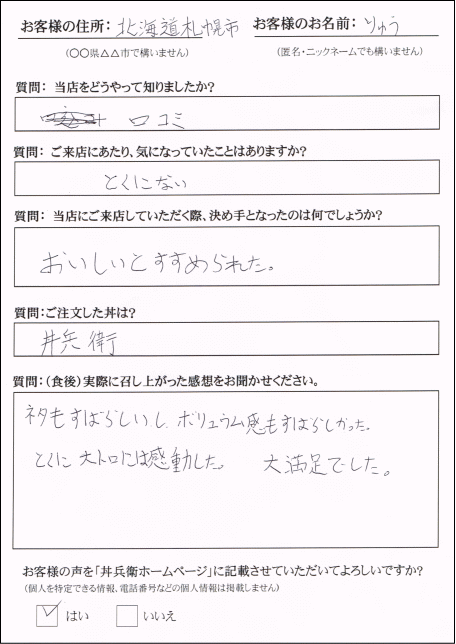 お客様の住所：北海道札幌市 お客様のお名前：りゅう
（〇〇県△△市で構いません） （匿名・ニックネームでも構いません）
質問： 当店をどうやって知りましたか？
口コミ
質問： ご来店にあたり、気になっていたことはありますか？
とくにない
質問： 当店にご来店していただく際、決め手となったのは何でしょうか？
おいしいとすすめられた。
質問：ご注文した丼は？
丼兵衛
質問：（食後）実際に召し上がった感想をお聞かせください。
ネタもすばらしいし、ボリュウム感もすばらしかった。
とくに大トロには感動した。 大満足でした。
お客様の声を「丼兵衛ホームページ」に記載させていただいてよろしいですか？
（個人を特定できる情報、電話番号などの個人情報は掲載しません）
はい いいえ